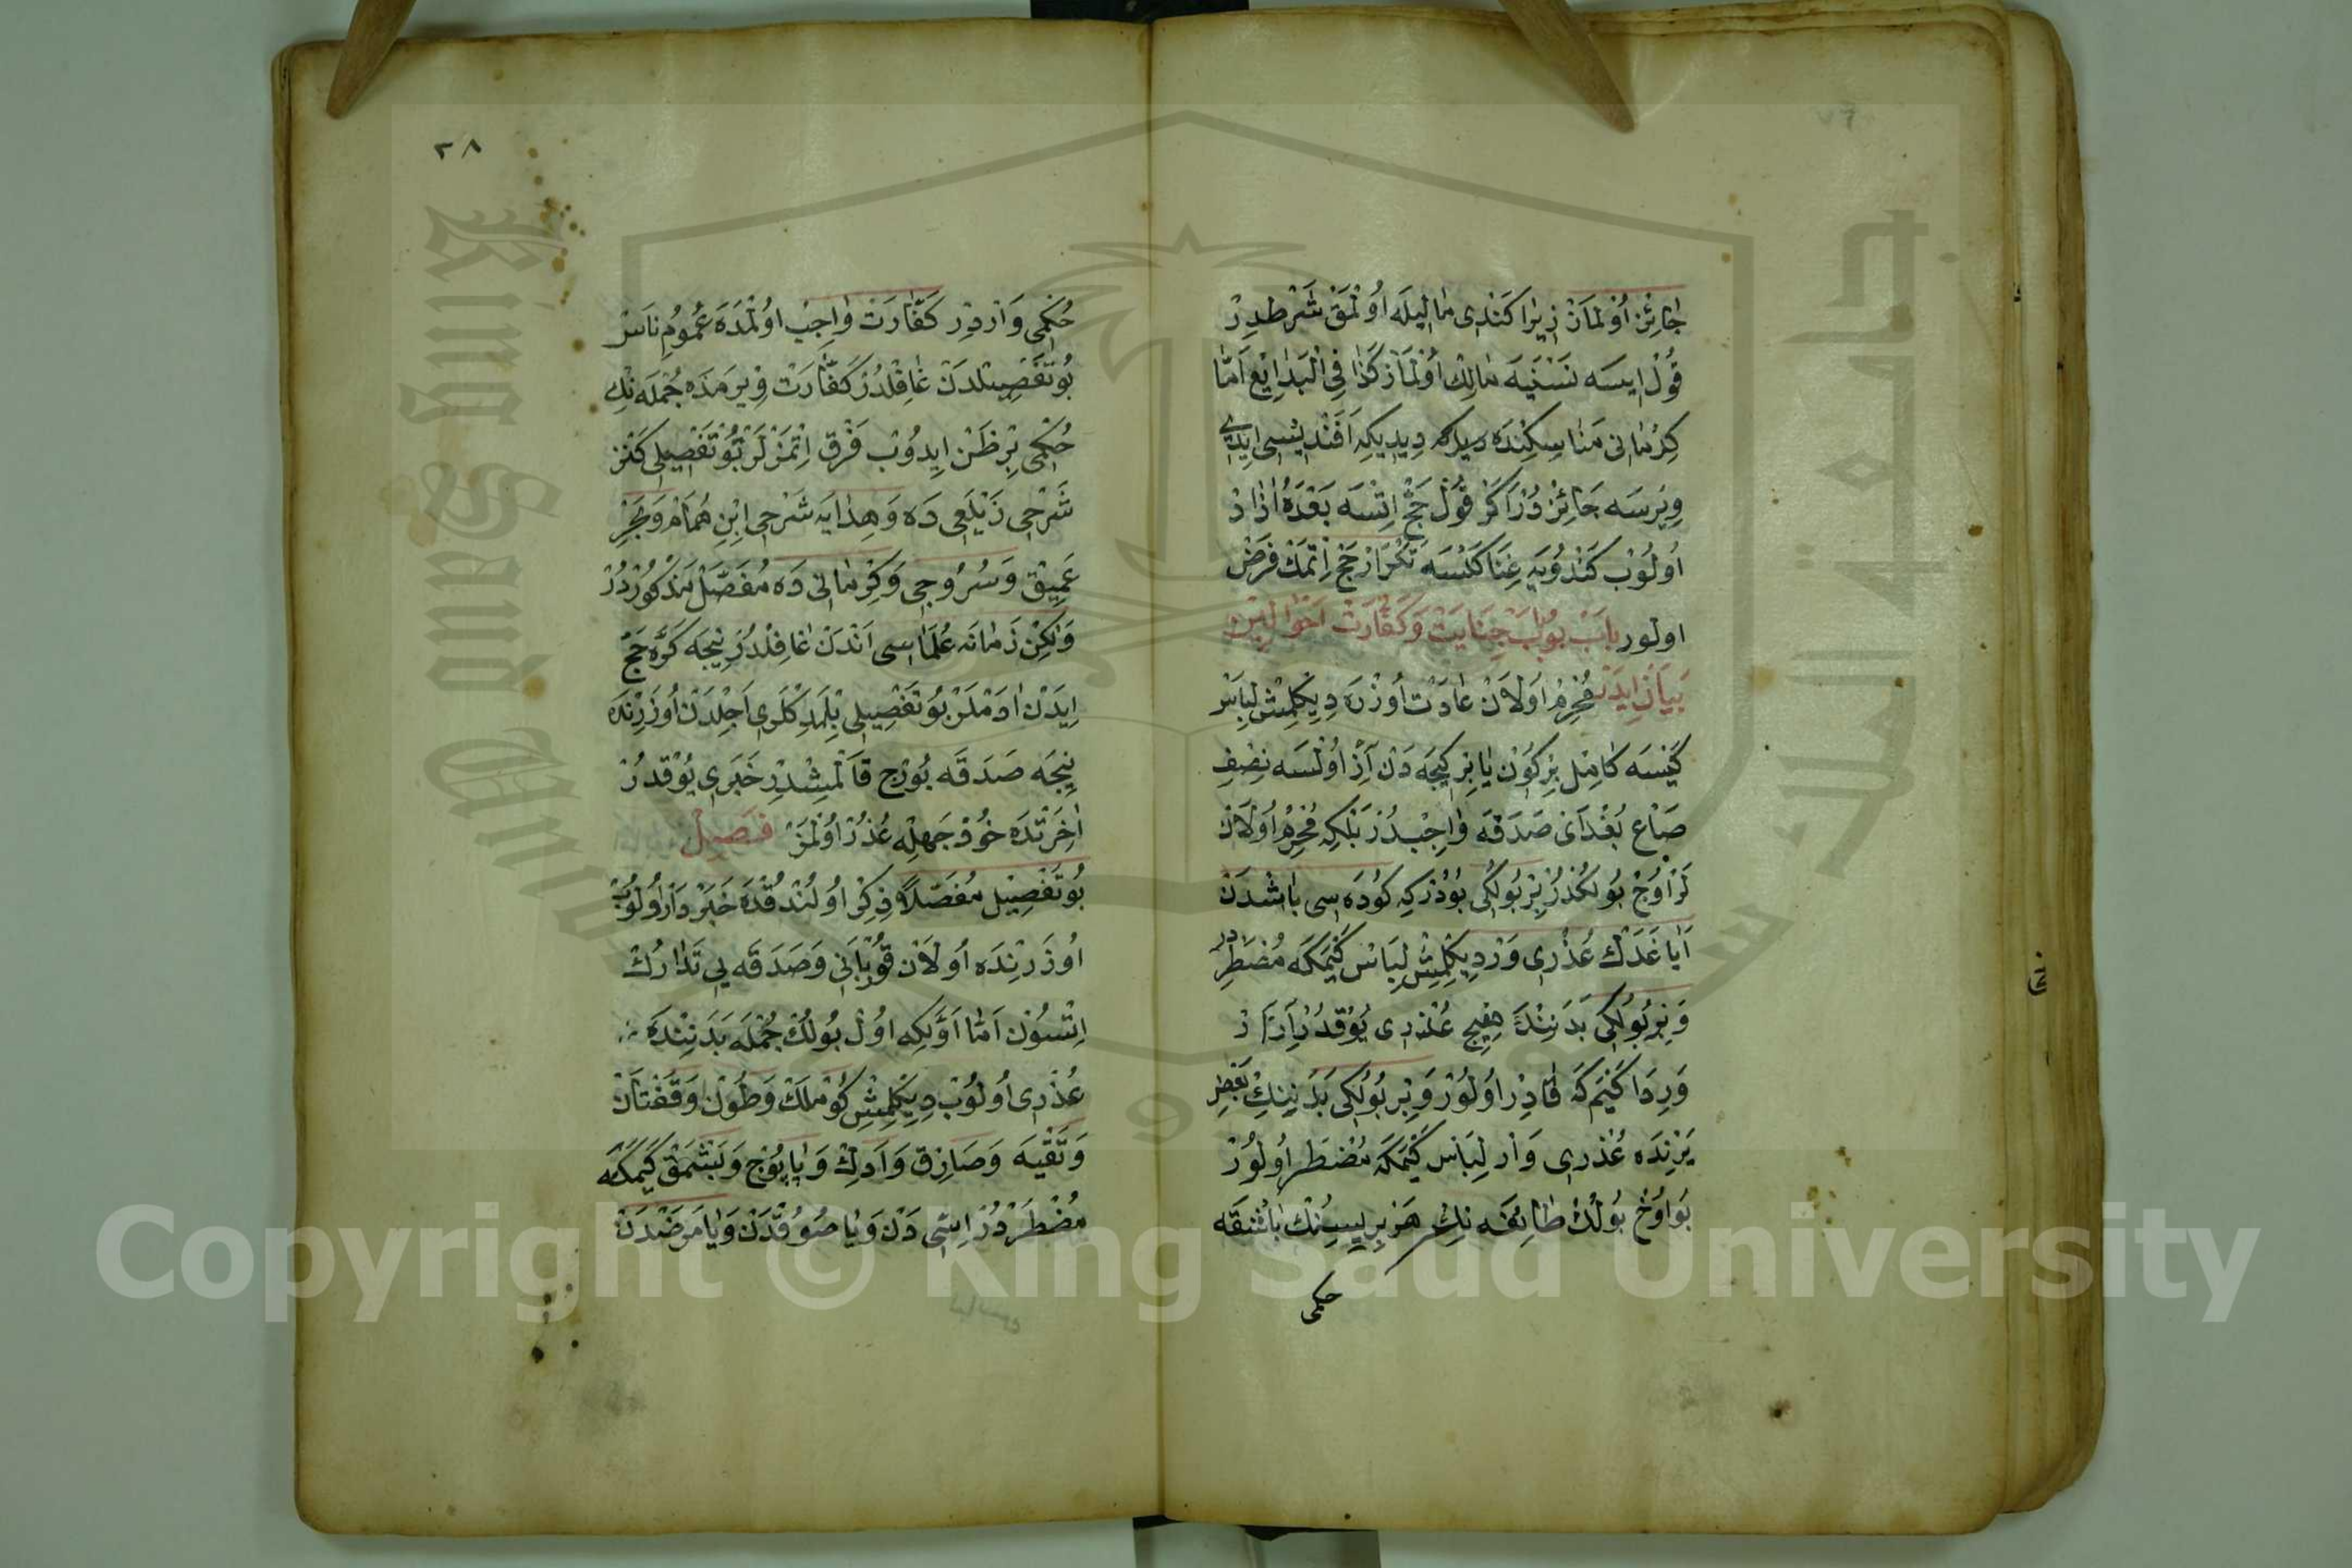 جَائِزْ اُوْلمَازْ زِيْرَا كَنْدِى مَالِيلَه اُوْلْمَقْ شَرْطدِرْ
قُوْلْ ايسَه نَسْنَيَه مَالِكْ اُوْلمَازْ كَذَا فِى الْبَدَايِعْ اَمَّا
كِرْمَانى مَنَاسِكِنْدَه دِيديكه اَفَنْدِيْسِى ايلَه
وِيْرسَه جَائِزْدُرْ اَكَرْ قُوْلْ حَجْ اِتْسَه بَعْدَهُ اٰزَادْ
اُولُوبْ كَنْدُويَه غِنَا كَلْسَه تَكْرَارْ حَجْ اِتْمَكْ فَرْضْ
اولور بَابْ بُو بَابْ جِنَايَتْ وَكَفَّارَتْ اَحْوَالِيْن
بَيَانْ اِيدَرْ مُحْرِمْ اَوْلَانْ عَادَتْ اُوزْرَه دِيكِلمِشْ لِبَاسْ
كَيْسَه كَامِلْ بِرْكُونْ يَا بِرْكِيجَه دَنْ اَزْ اُوْلْسَه نِصْفِ
صَاعْ بُغْدَاىْ صَدَقَه وَاجِبْدُرْ بَلْكِه مُحْرِمْ اُوْلَانْ
لَرْ اوُجْ بُولكدُرْ بِرْ بُولُكى بُودُرْكِه كَوْدَه سِى بَاشْدَنْ
اَيَاغَدَكْ عُذْرِى وَرْ دِيكِلْمِشْ لِبَاسْ كَيْمَكَه مُضْطَرْدِر
وَبِرْ بُولُكِى بَدَنِنْدَه هِيچ عُذْرِى يُوْقدُرْ اِزَارْ
وَرِدَا كَيْمَكَه قَادِرْ اُولُورْ وَبِرْ بُولُكى بَدَنِينِكْ بَعْضِ
يَرْنِدَه عُذْرِى وَارْ لِبَاسْ كَيْمَكَه مُضْطَرْ اُولُورْ
بُو اوُجْ بُولُكْ طَائِفَه نِكْ هَرْ بِرِيسِنُكْ بَاشْقَه
حكمى
٣٨
حُكْمى وَارْدِرْ كَفَّارَتْ وَاجِبْ اوُلْمَدَه عُمُومِ نَاسْ
بُو تَفْصِيلدَنْ غَافِلْدُرْ كَفَّارَتْ وِيرمَدَه جُمْلَه نِكْ
حُكْمى بِرْ ظَنْ ايدُوبْ فَرْقْ اِتْمَزْلَرْ بُو تَفْصِيلِى كَنْز
شَرْحِى زَيْلَعِى دَه وَهِدَايَه شَرْحِى ابْنِ هُمَامْ وَبَحْرِ
عَمِيقْ وَسُرُوجِى وَكِرْمَانى دَه مُفَصَّلْ مَذْكُورْدُرْ
وَلٰكِنْ زَمَانَه عُلَمَاسِى اَنْدَنْ غَافِلْدُرْ نِيجَه كَرَّه حَجْ
اِيدَنْ ادَمْلَرْ بُو تَفْصِيلِى بِلْمَدِكْلَرى اَجِلْدَنْ اُوزَرِنْدَه
نِيجَه صَدَقَه بُورْج قَالْمِشْدِرْ خَبَرِى يُوْقدُرْ
اٰخِرَتْدَه خُودْ جَهْلِه عُذُرْ اوُلْمَزْ فَصِيلْ
بُو تَفْصِيلْ مُفَصَّلاً ذِكِرْ اوُلُنْدُقْدَه خَبَرْدَارْ اُولُوبْ
اُوزَرِنْدَه اُولَانْ قُورْبَانى وَصَدَقَه يِى تَدَارُكْ
اِتْسُونْ اَمَّا اَوَّلكِه اوُلْ بُولُكْ جُمْلَه بَدَنِنْدَه
عُذْرِى اُولُوبْ دِيكِلْمِشْ كُومْلَكْ وَطُونْ وَقَفْتَانْ
وَتَقْيَه وَصَارِقْ وَاَدِكْ وَپَاپُوجْ وَبَشْمَقْ كَيْمَكَه
مُضْطَرْدُرْ اِسِّى دَنْ وَيَا صُوُقْدَنْ وَيَا مَرَضْدَنْ
Copyright © King Saud University